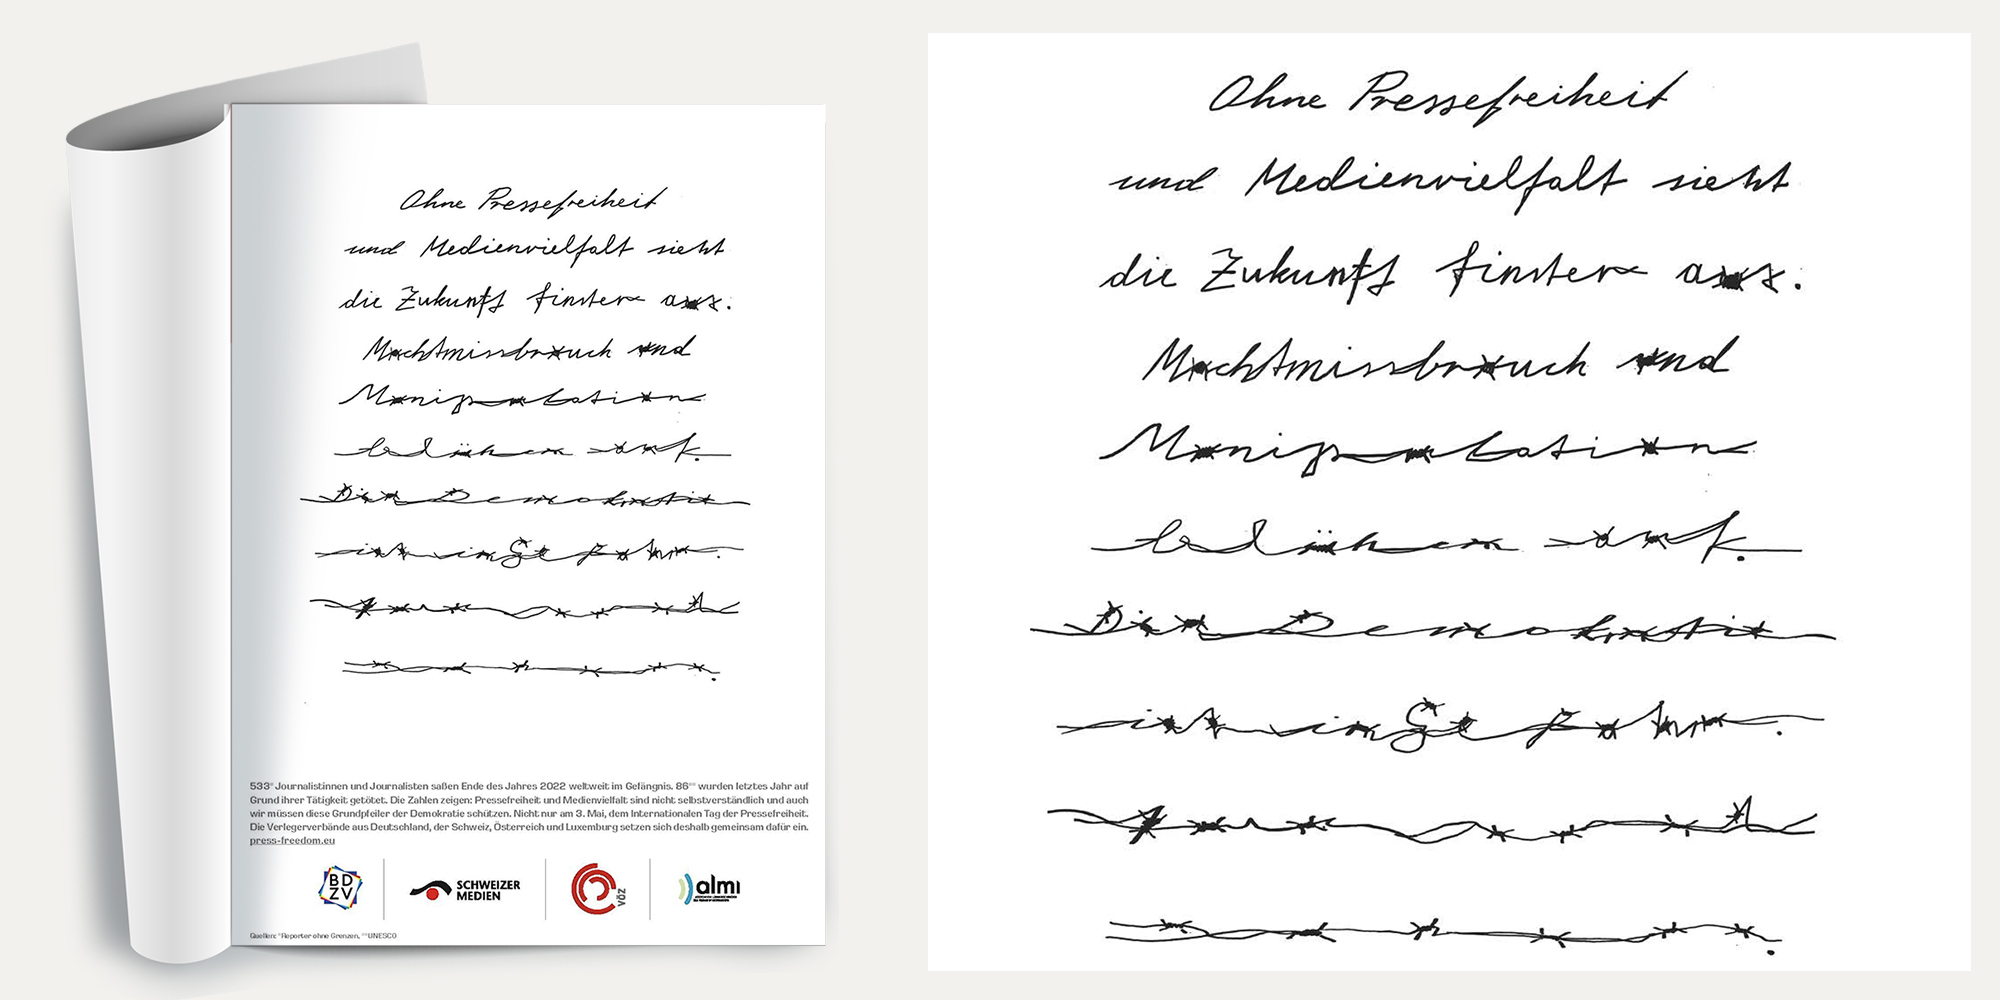 Ohne Pressefreiheit
und Medienvielfalt sieht
die Zukunft finster aus.
Machtmissbrauch und
Manipulation
blühen auf.
Die Demokratie
ist in Gefahr.
533* Journalistinnen und Journalisten saßen Ende des Jahres 2022 weltweit im Gefängnis. 86** wurden letztes Jahr auf
Grund ihrer Tätigkeit getötet. Die Zahlen zeigen: Pressefreiheit und Medienvielfalt sind nicht selbstverständlich und auch
wir müssen diese Grundpfeiler der Demokratie schützen. Nicht nur am 3. Mai, dem Internationalen Tag der Pressefreiheit.
Die Verlegerverbände aus Deutschland, der Schweiz, Österreich und Luxemburg setzen sich deshalb gemeinsam dafür ein.
press-freedom.eu
BD
ZV
SCHWEIZER
MEDIEN
VÖZ
almi
Quellen: *Reporter ohne Grenzen, **UNESCO
Ohne Pressefreiheit
und Medienvielfalt sieht
die Zukunft finster aus.
Machtmissbrauch und
Manipulation
blühen auf.
Die Demokratie
ist in Gefahr.